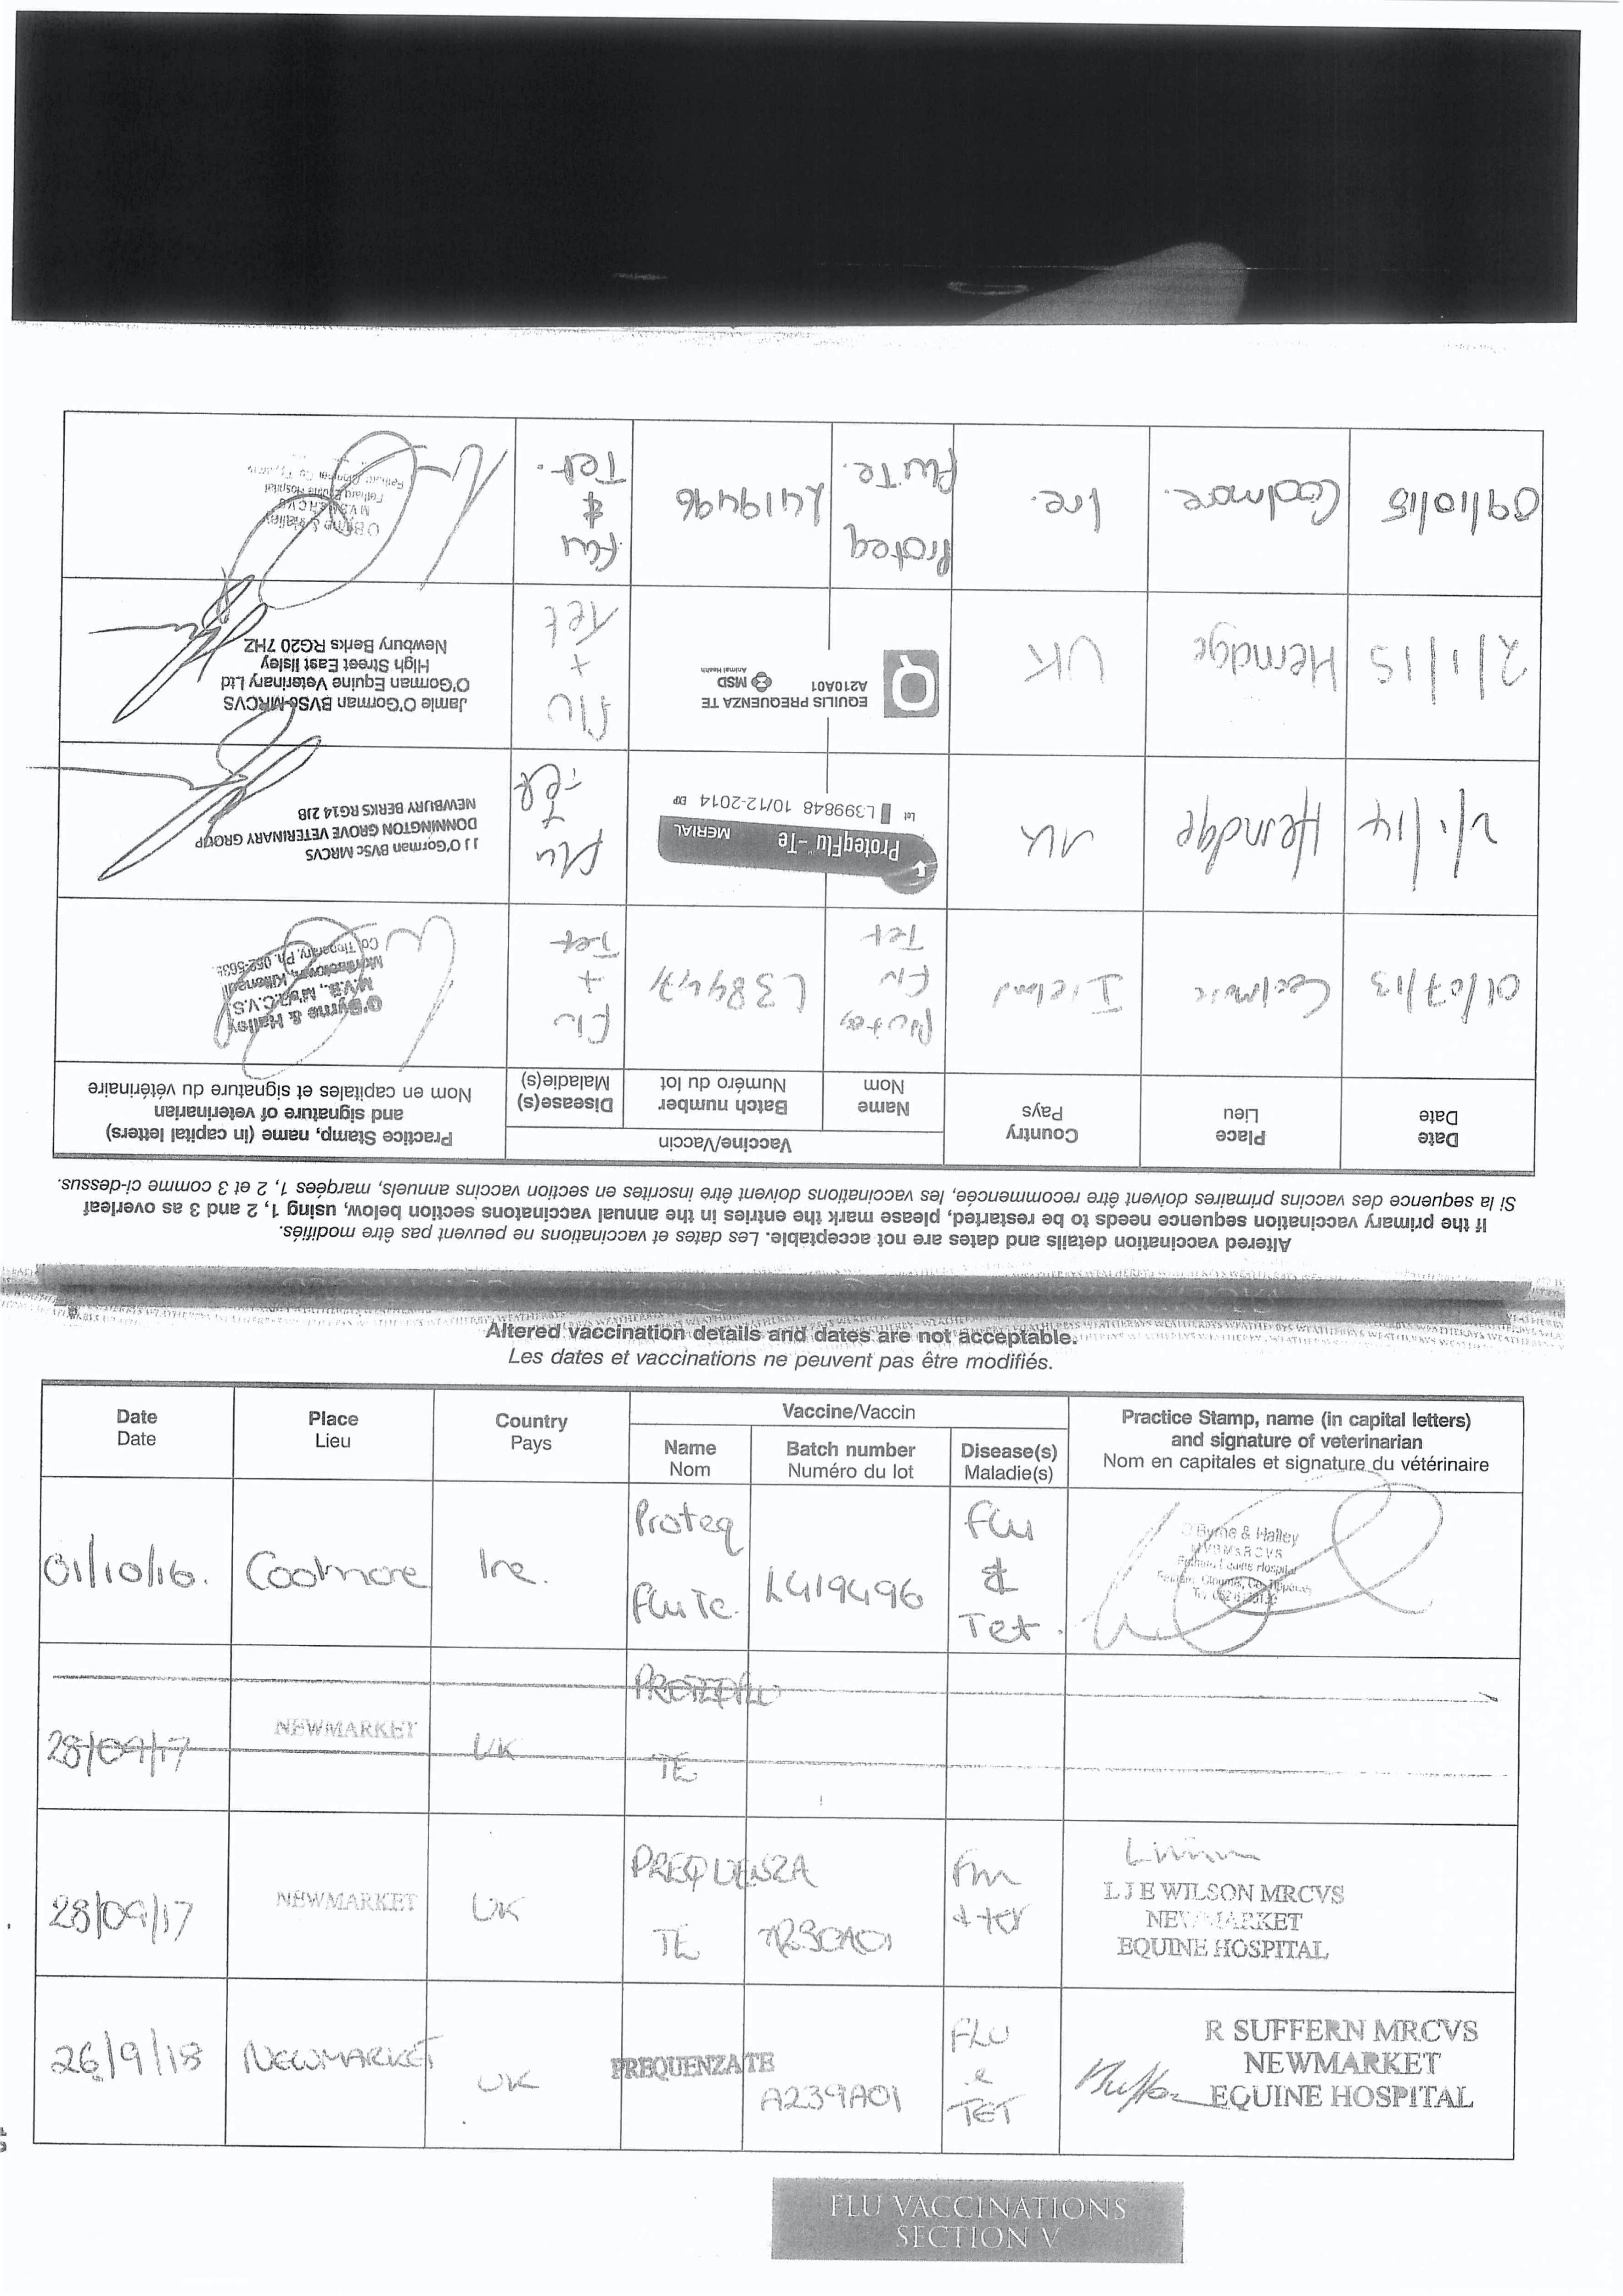 Altered vaccination details and dates are not acceptable. Les dates et vaccinations ne peuvent pas être modifiés.
If the primary vaccination sequence needs to be restarted, please mark the entries in the annual vaccinatons section below, using 1, 2 and 3 as overleaf
Si la sequence des vaccins primaires doivent être recommencée, les vaccinations doivent être inscrites en section vaccins annuels, marqées 1, 2 et 3 comme ci-dessus.
Date
Date
Place
Lieu
Country
Pays
Vaccine/Vaccin
Name
Nom
Batch number
Numéro du lot
Disease(s)
Maladie(s)
Practice Stamp, name (in capital letters)
and signature of veterinarian
Nom en capitales et signature du vétérinaire
01/07/13
Coolmore
Ireland
Proteq
Flu
Tet
L384471
Flu
+
Tet
O'Byrne & Halley
Co. Tipperary, Ph. 052-
2/1/14
Herridge
UK
ProteqFlu -Te
MERIAL
Lot L399848 10/12-2014 EXP
Flu
Tet
J J O'Gorman BVSc MRCVS
DONNINGTON GROVE VETERINARY GROUP
NEWBURY BERKS RG14 2JB
2/1/15
Herridge
UK
EQUILIS PREQUENZA TE
A210A01
MSD
Animal Health
Flu
+
Tet
Jamie O'Gorman BVSc MRCVS
O'Gorman Equine Veterinary Ltd
High Street East Ilsley
Newbury Berks RG20 7HZ
09/10/15
Coolmore.
Ire.
Proteq
Flu Te.
L419496
Flu
&
Tet.
O'Byrne & Halley
Altered vaccination details and dates are not acceptable.
Les dates et vaccinations ne peuvent pas être modifiés.
Date
Date
Place
Lieu
Country
Pays
Vaccine/Vaccin
Name
Nom
Batch number
Numéro du lot
Disease(s)
Maladie(s)
Practice Stamp, name (in capital letters)
and signature of veterinarian
Nom en capitales et signature du vétérinaire
01/10/16.
Coolmore
Ire.
Proteq
Flu Te.
L419496
Flu
&
Tet.
O'Byrne & Halley
28/09/17
NEWMARKET
UK
PROTEQFLU
TE
28/09/17
NEWMARKET
UK
PREQUENZA
TE
A230A01
Flu
+ tet
L J E WILSON MRCVS
NEWMARKET
EQUINE HOSPITAL
26/9/18
NEWMARKET
UK
PREQUENZA TE
A239A01
FLU
&
TET
R SUFFERN MRCVS
NEWMARKET
EQUINE HOSPITAL
FLU VACCINATIONS
SECTION V